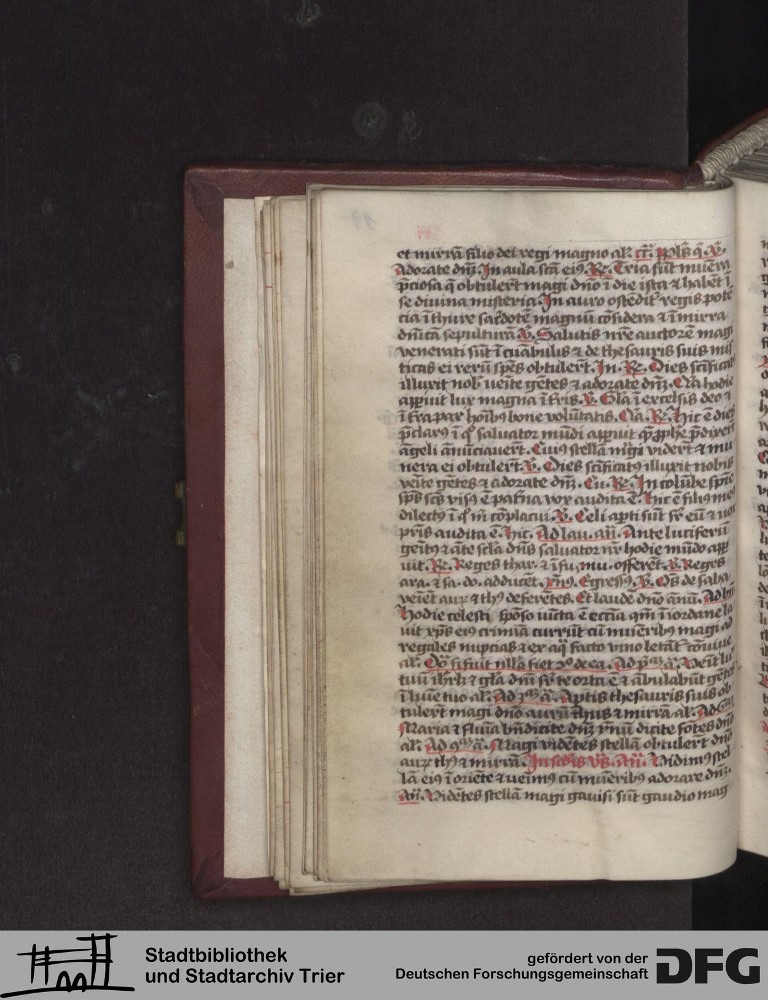 et mirrā filio dei regi magno al'.
Adorate dn̄z. In aula scā eiꝰ. Re. Tria sūt mūera
p̄ciosa q̄ obtulerūt magi dn̄o ī die ista & habēt ī
se divina misteria. In auro ostēdit᷑ regis potē
cia ī thure sac̄dotē magnū cōsidera & ī mirra
dn̄icā sepulturā. V. Salutis nr̄e auctorē magi
venerati sūt ī cunabulis & de thesauris suis mis
ticas ei rerū spēs obtulerūt. In. Re. Dies scīficatꝰ
illuxit nob' veīte gētes & adorate dn̄z. Q̄a hodie
apparuit lux magna ī tr̄is. V. Gl̄a ī excelsis deo &
ī t̄ra pax hoīb' bone volūtatis. Q̄a. Re. Hic ē dies
p̄clarꝰ ī q̊ salvator mūdi apparuit
āgeli ānūciaverūt. Cuiꝰ stellā magi viderūt & mu
nera ei obtulerūt. V. Dies scīficatꝰ illuxit nobis
veīte gētes & adorate dn̄z. Cu. Re. In colūbe spē
sp̄s scs visꝰ ē pat̄na vox audita ē. Hic ē filiꝰ meꝰ
dilectꝰ ī q̊ m̄ cōplacui. V. Celi apti sūt sꝑ eū & vox
pris audita ē. Hic. Ad lau. an̄. Ante luciferū
genitꝰ & āte scl̄a dn̄s salvator nr̄ hodie mūdo appa
ruit. Re. Reges thar. & īsu. mu. offerēt. V. Reges
ara. & sa. do. adducēt. Egressꝰ. V. Om̄s de saba
veīēt aurū & thꝰ deferētes. Et laudē dn̄o ānū. Ad bn̄
Hodie celesti sponso iūcta ē eccīa qm̄ ī iordane la
vit xp̄s eiꝰ crimīa currūt cū mūeribꝰ magi ad
regales nupcias & ex aq̄ facto vino letāt᷑ cōvive
al'. Ad p̄ā. ā. Venit lu
mē tuū ihrl'm & gl̄a dn̄i sꝑ te orta ē & ābulabūt gētes
ī lumīe tuo al'. Ad 3ᵃᵐ ā. Aptis thesauris suis ob
tulerūt magi dn̄o aurū thus & mirrā al'. Ad
Maria & flumīa bn̄dicite dn̄z ymnū dicite fōtes dn̄o
al'. Magi vidētes stellā obtulerūt dn̄o
aurū thꝰ & mirrā. In scdis vs̄. An̄. Vidimꝰ stel
lā eiꝰ ī oriēte & venimꝰ cū mūeribꝰ adorare dn̄z.
An̄. Vidētes stellā magi gavisi sūt gaudio mag
Stadtbibliothek
und Stadtarchiv Trier
gefördert von der
Deutschen Forschungsgemeinschaft
DFG